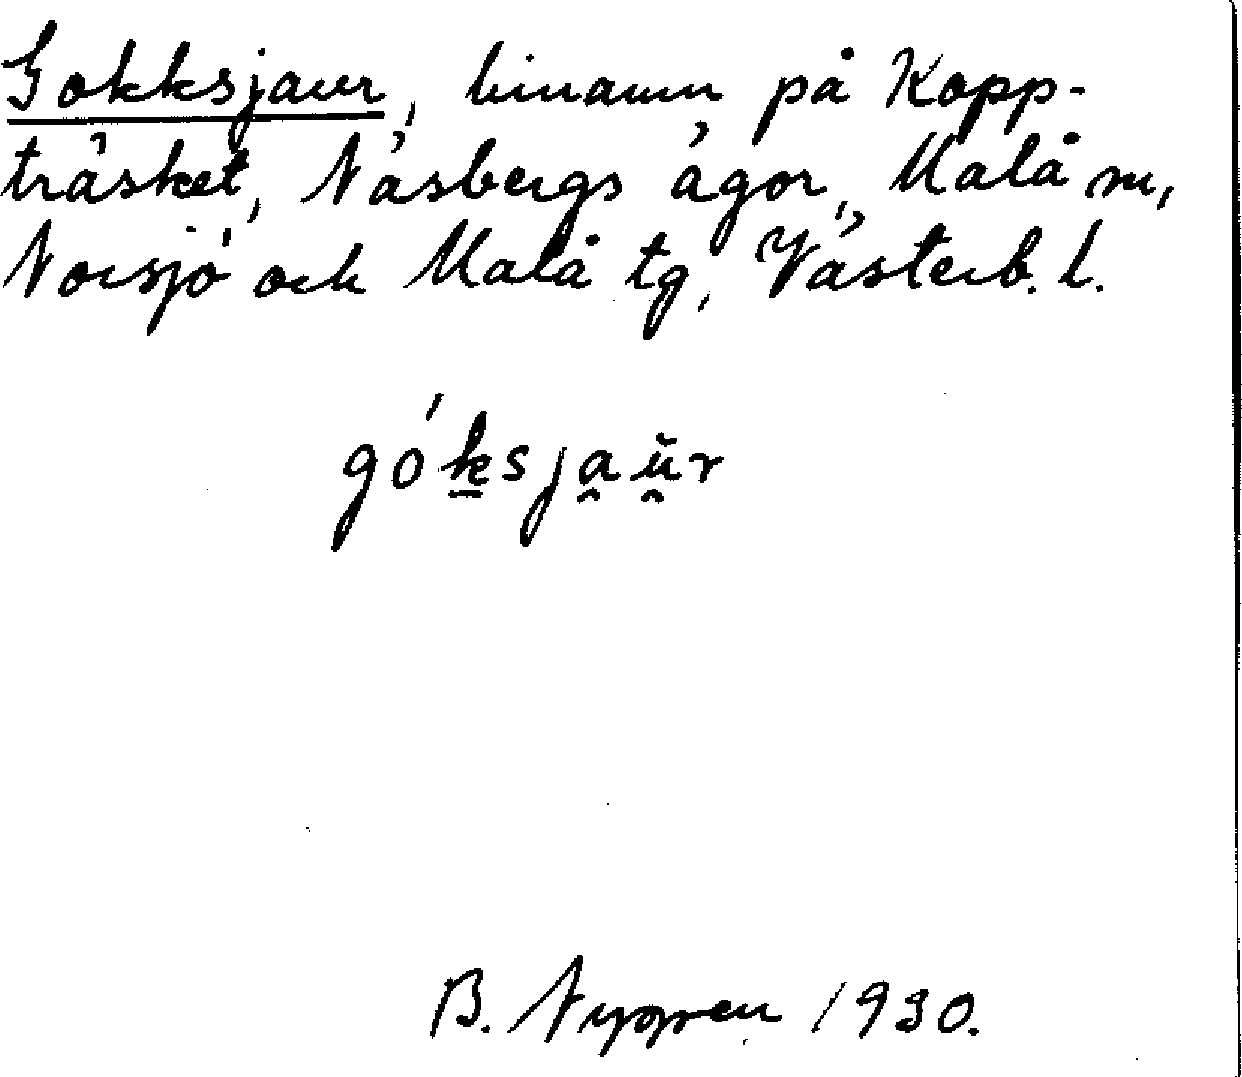 Gokksjaur, binamn på Kopp-
träsket, Näsbergs ägor, Malå sn,
Norsjö och Malå tg, Västerb. l.
gó̱ksja̯ŭ̯r
B. Nygren 1930.